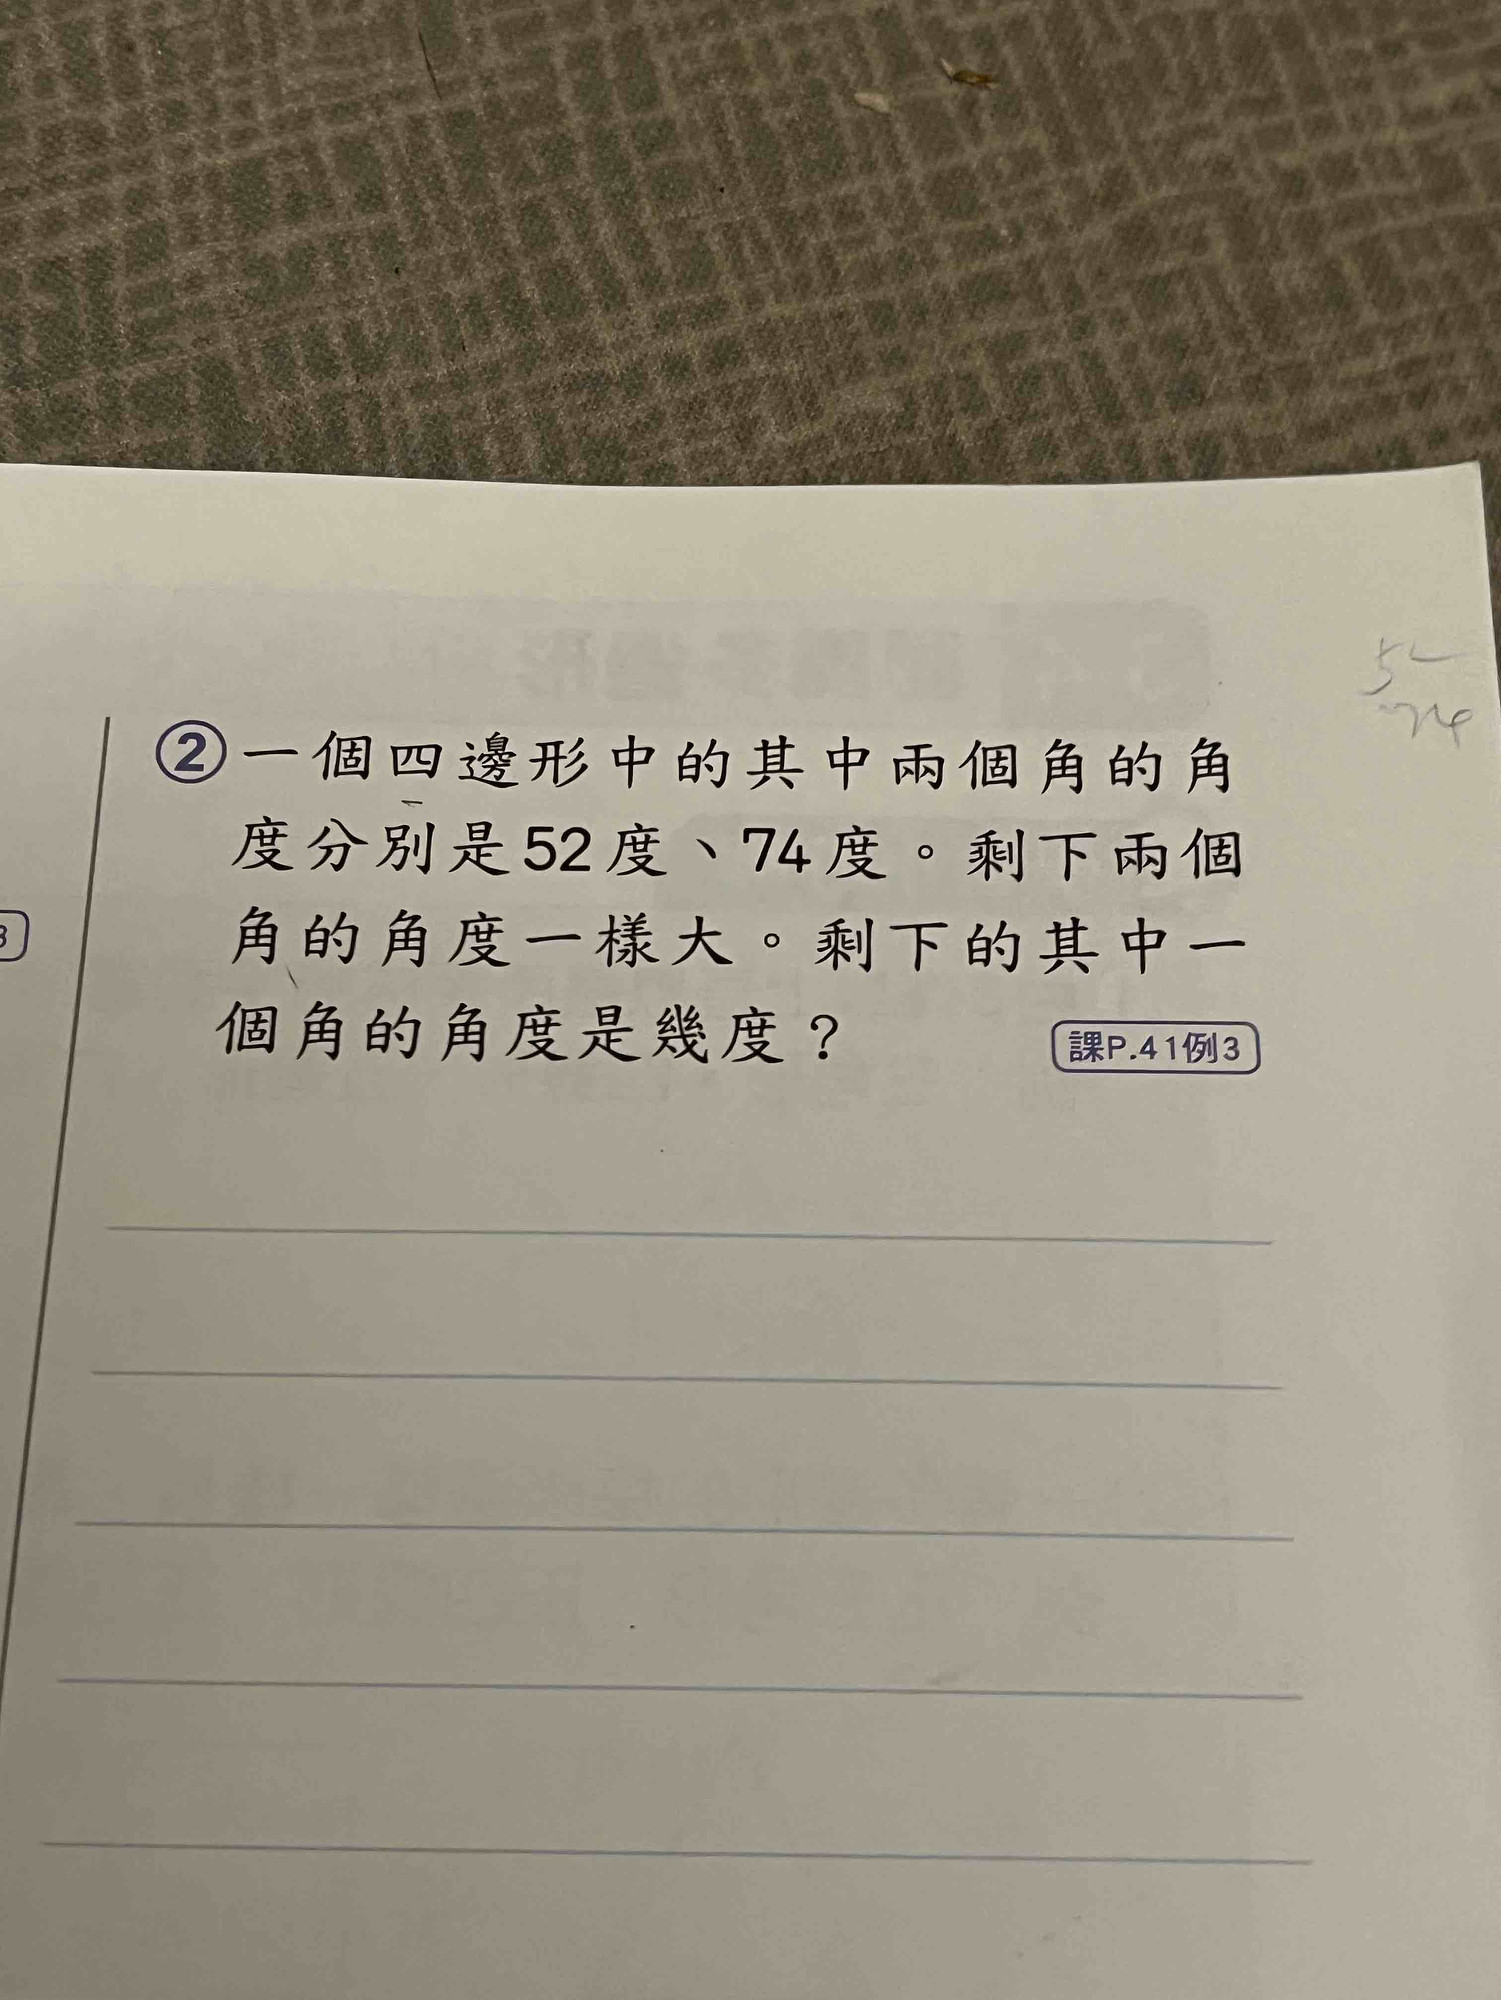 ② 一個四邊形中的其中兩個角的角
度分別是52度、74度。剩下兩個
角的角度一樣大。剩下的其中一
個角的角度是幾度？
課P.41例3
52
74